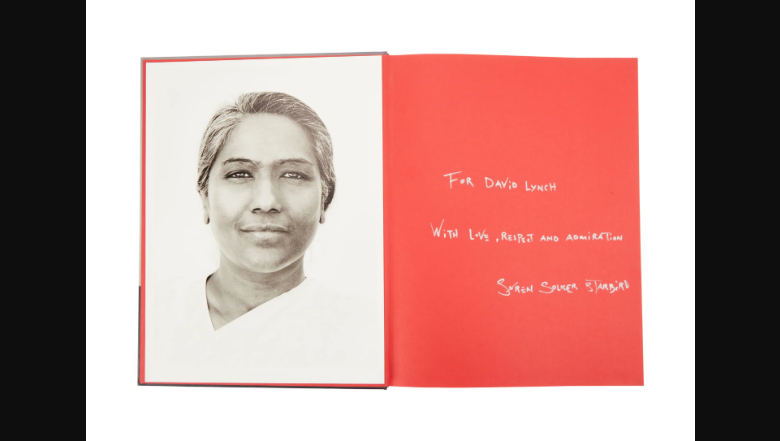 FOR DAVID LYNCH
WITH LOVE, RESPECT AND ADMIRATION
SØREN SOLKÆR STARBIRD